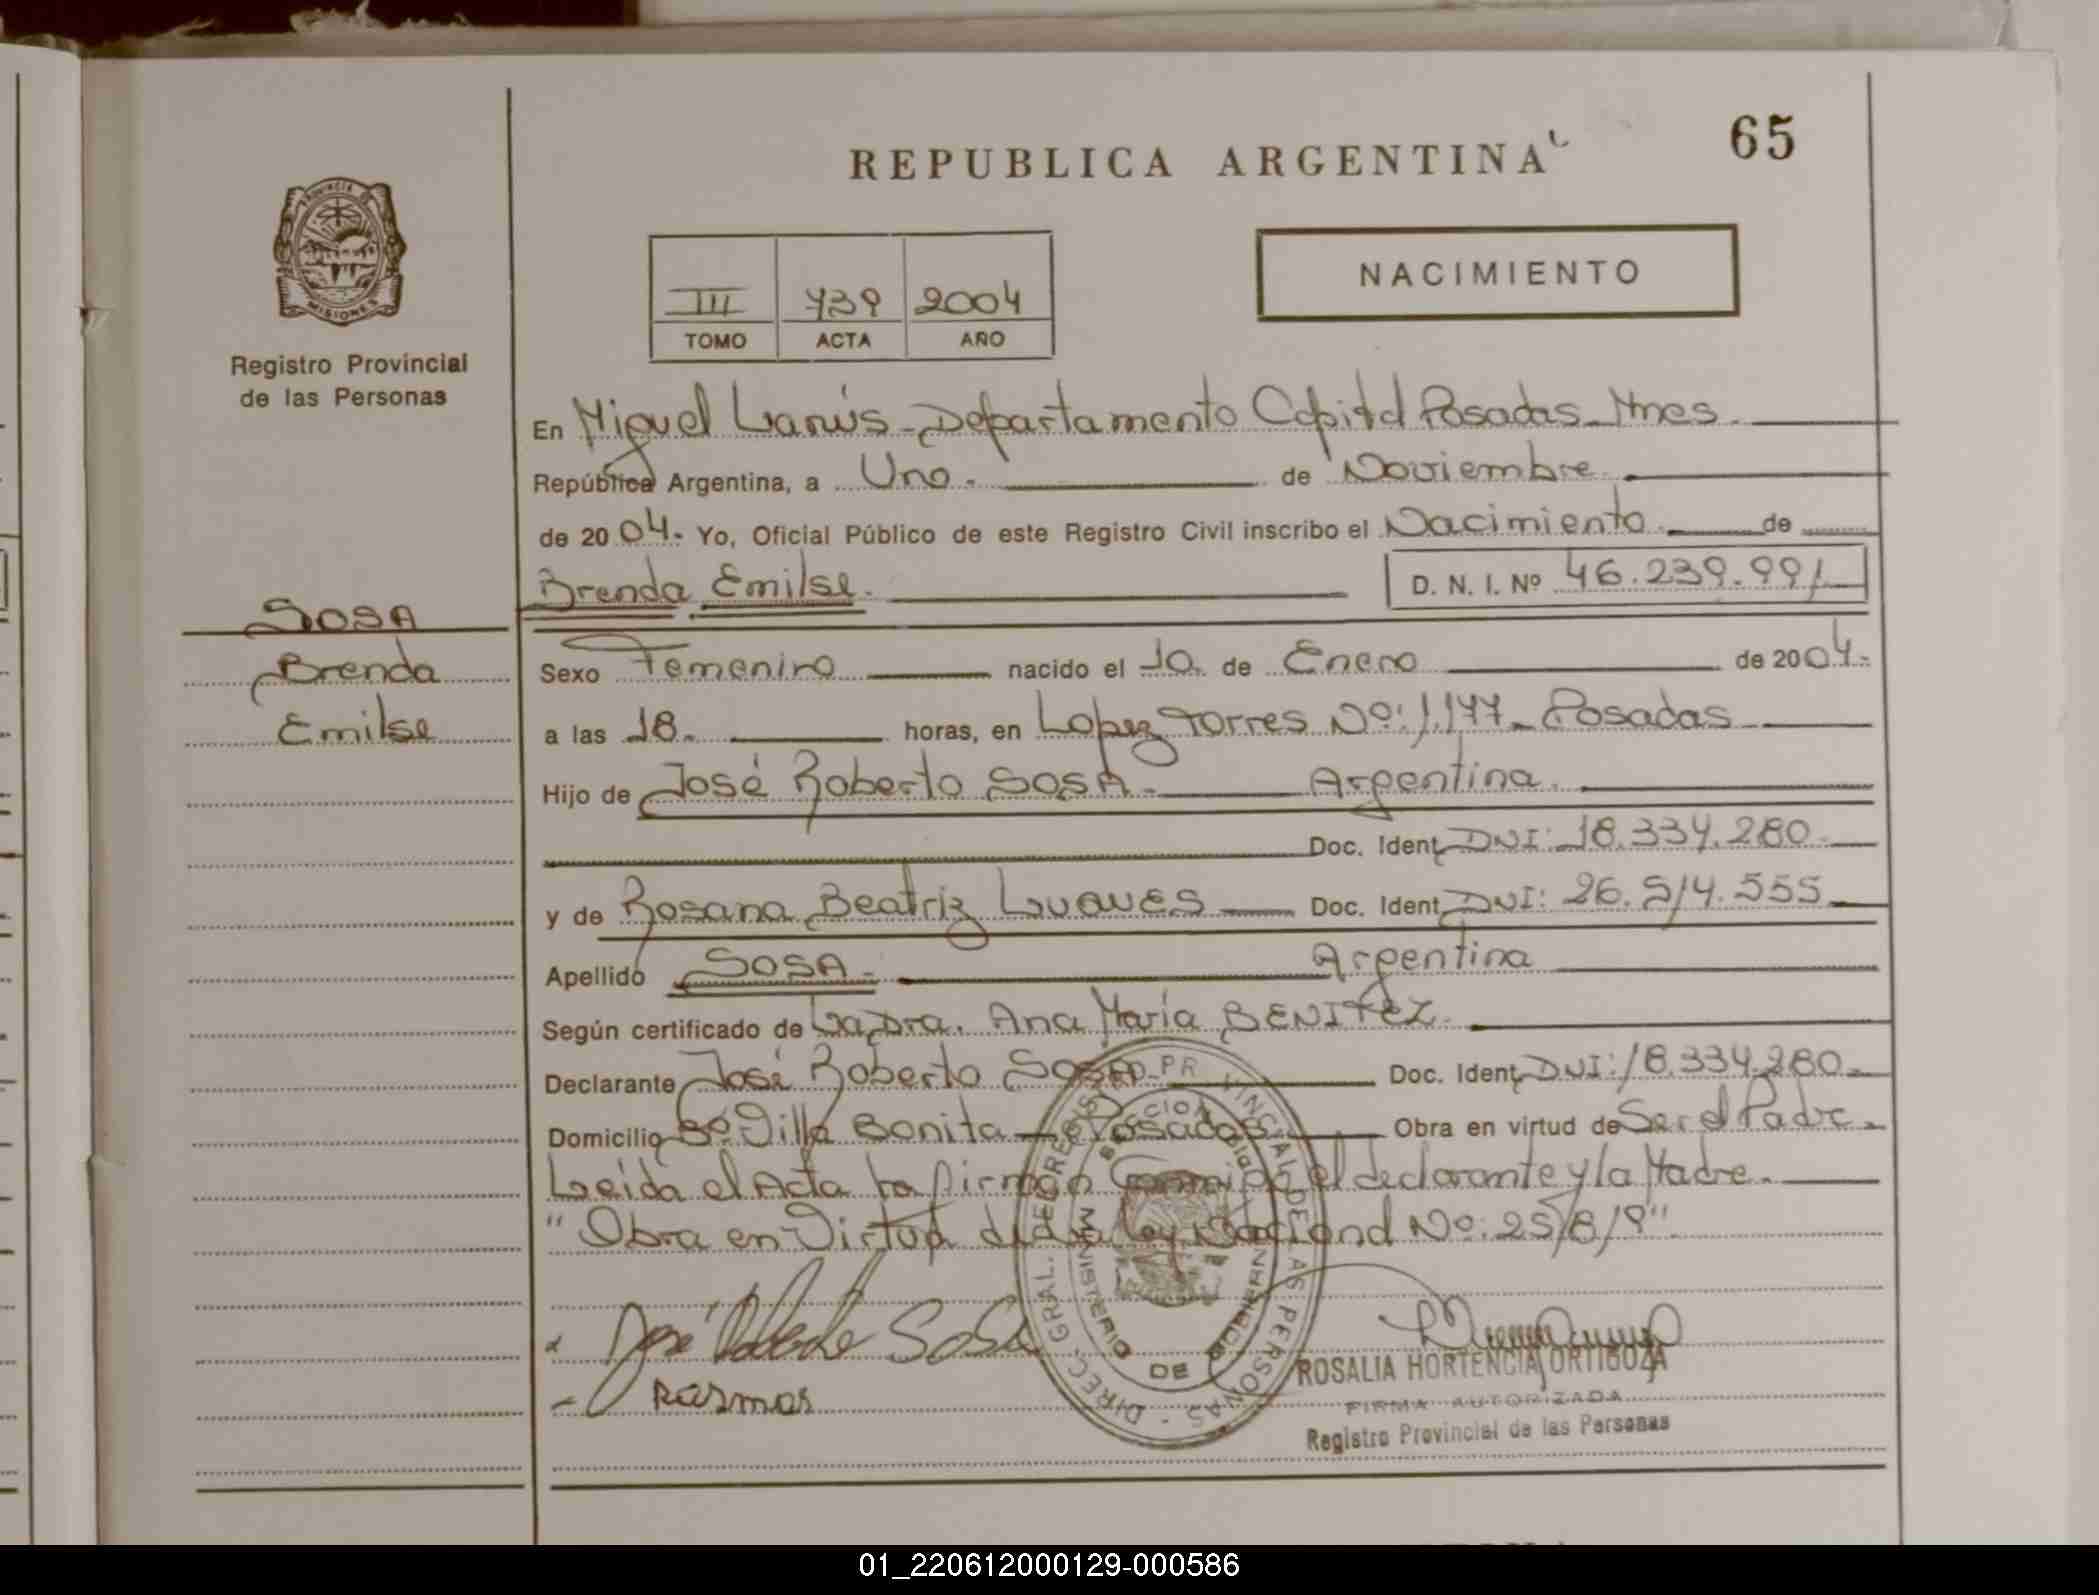 REPUBLICA ARGENTINA
65
PROVINCIA DE
MISIONES
Registro Provincial
de las Personas
III 739 2004
TOMO ACTA AÑO
NACIMIENTO
En Miguel Lanús - Departamento Capital Posadas - Mnes.
República Argentina, a Uno. de Noviembre.
de 2004. Yo, Oficial Público de este Registro Civil inscribo el Nacimiento. de
Brenda Emilse. D. N. I. Nº 46.239.991
SOSA
Brenda
Emilse
Sexo Femenino nacido el 10. de Enero de 2004.
a las 18. horas, en Lopez Torres Nº: 1.177 - Posadas
Hijo de José Roberto SOSA. Argentina.
Doc. Ident DNI: 18.334.280.
y de Rosana Beatriz Doc. Ident DNI: 26.514.555
Apellido SOSA. Argentina
Según certificado de La Dra. Ana María BENITEZ.
Declarante José Roberto SOSA Doc. Ident DNI: 18.334.280.
Domicilio Bº Villa Bonita - Posadas. Obra en virtud de Ser el Padre.
Leida el Acta la firman Conmigo el declarante y la Madre.
"Obra en Virtud de la Ley Nacional Nº: 25/8/9"
José Roberto Sosa
DIREC. GRAL. DE REGISTRO PROVINCIAL DE LAS PERSONAS
MINISTERIO DE GOBIERNO
ROSALIA HORTENCIA ORTIGOZA
FIRMA AUTORIZADA
Registro Provincial de las Personas
01_220612000129-000586